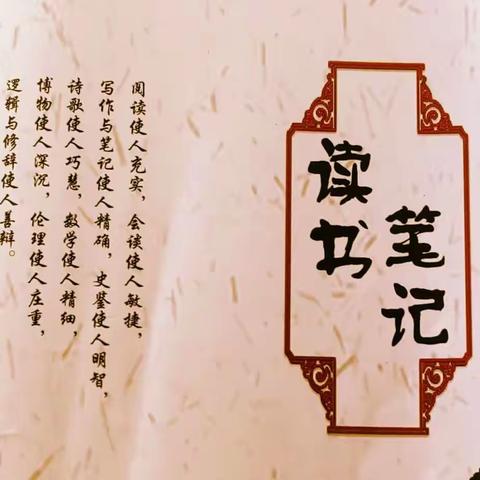 读书
笔记
阅读使人充实，会谈使人敏捷，
写作与笔记使人精确，史鉴使人明智，
诗歌使人巧慧，数学使人精细，
博物使人深沉，伦理使人庄重，
逻辑与修辞使人善辩。